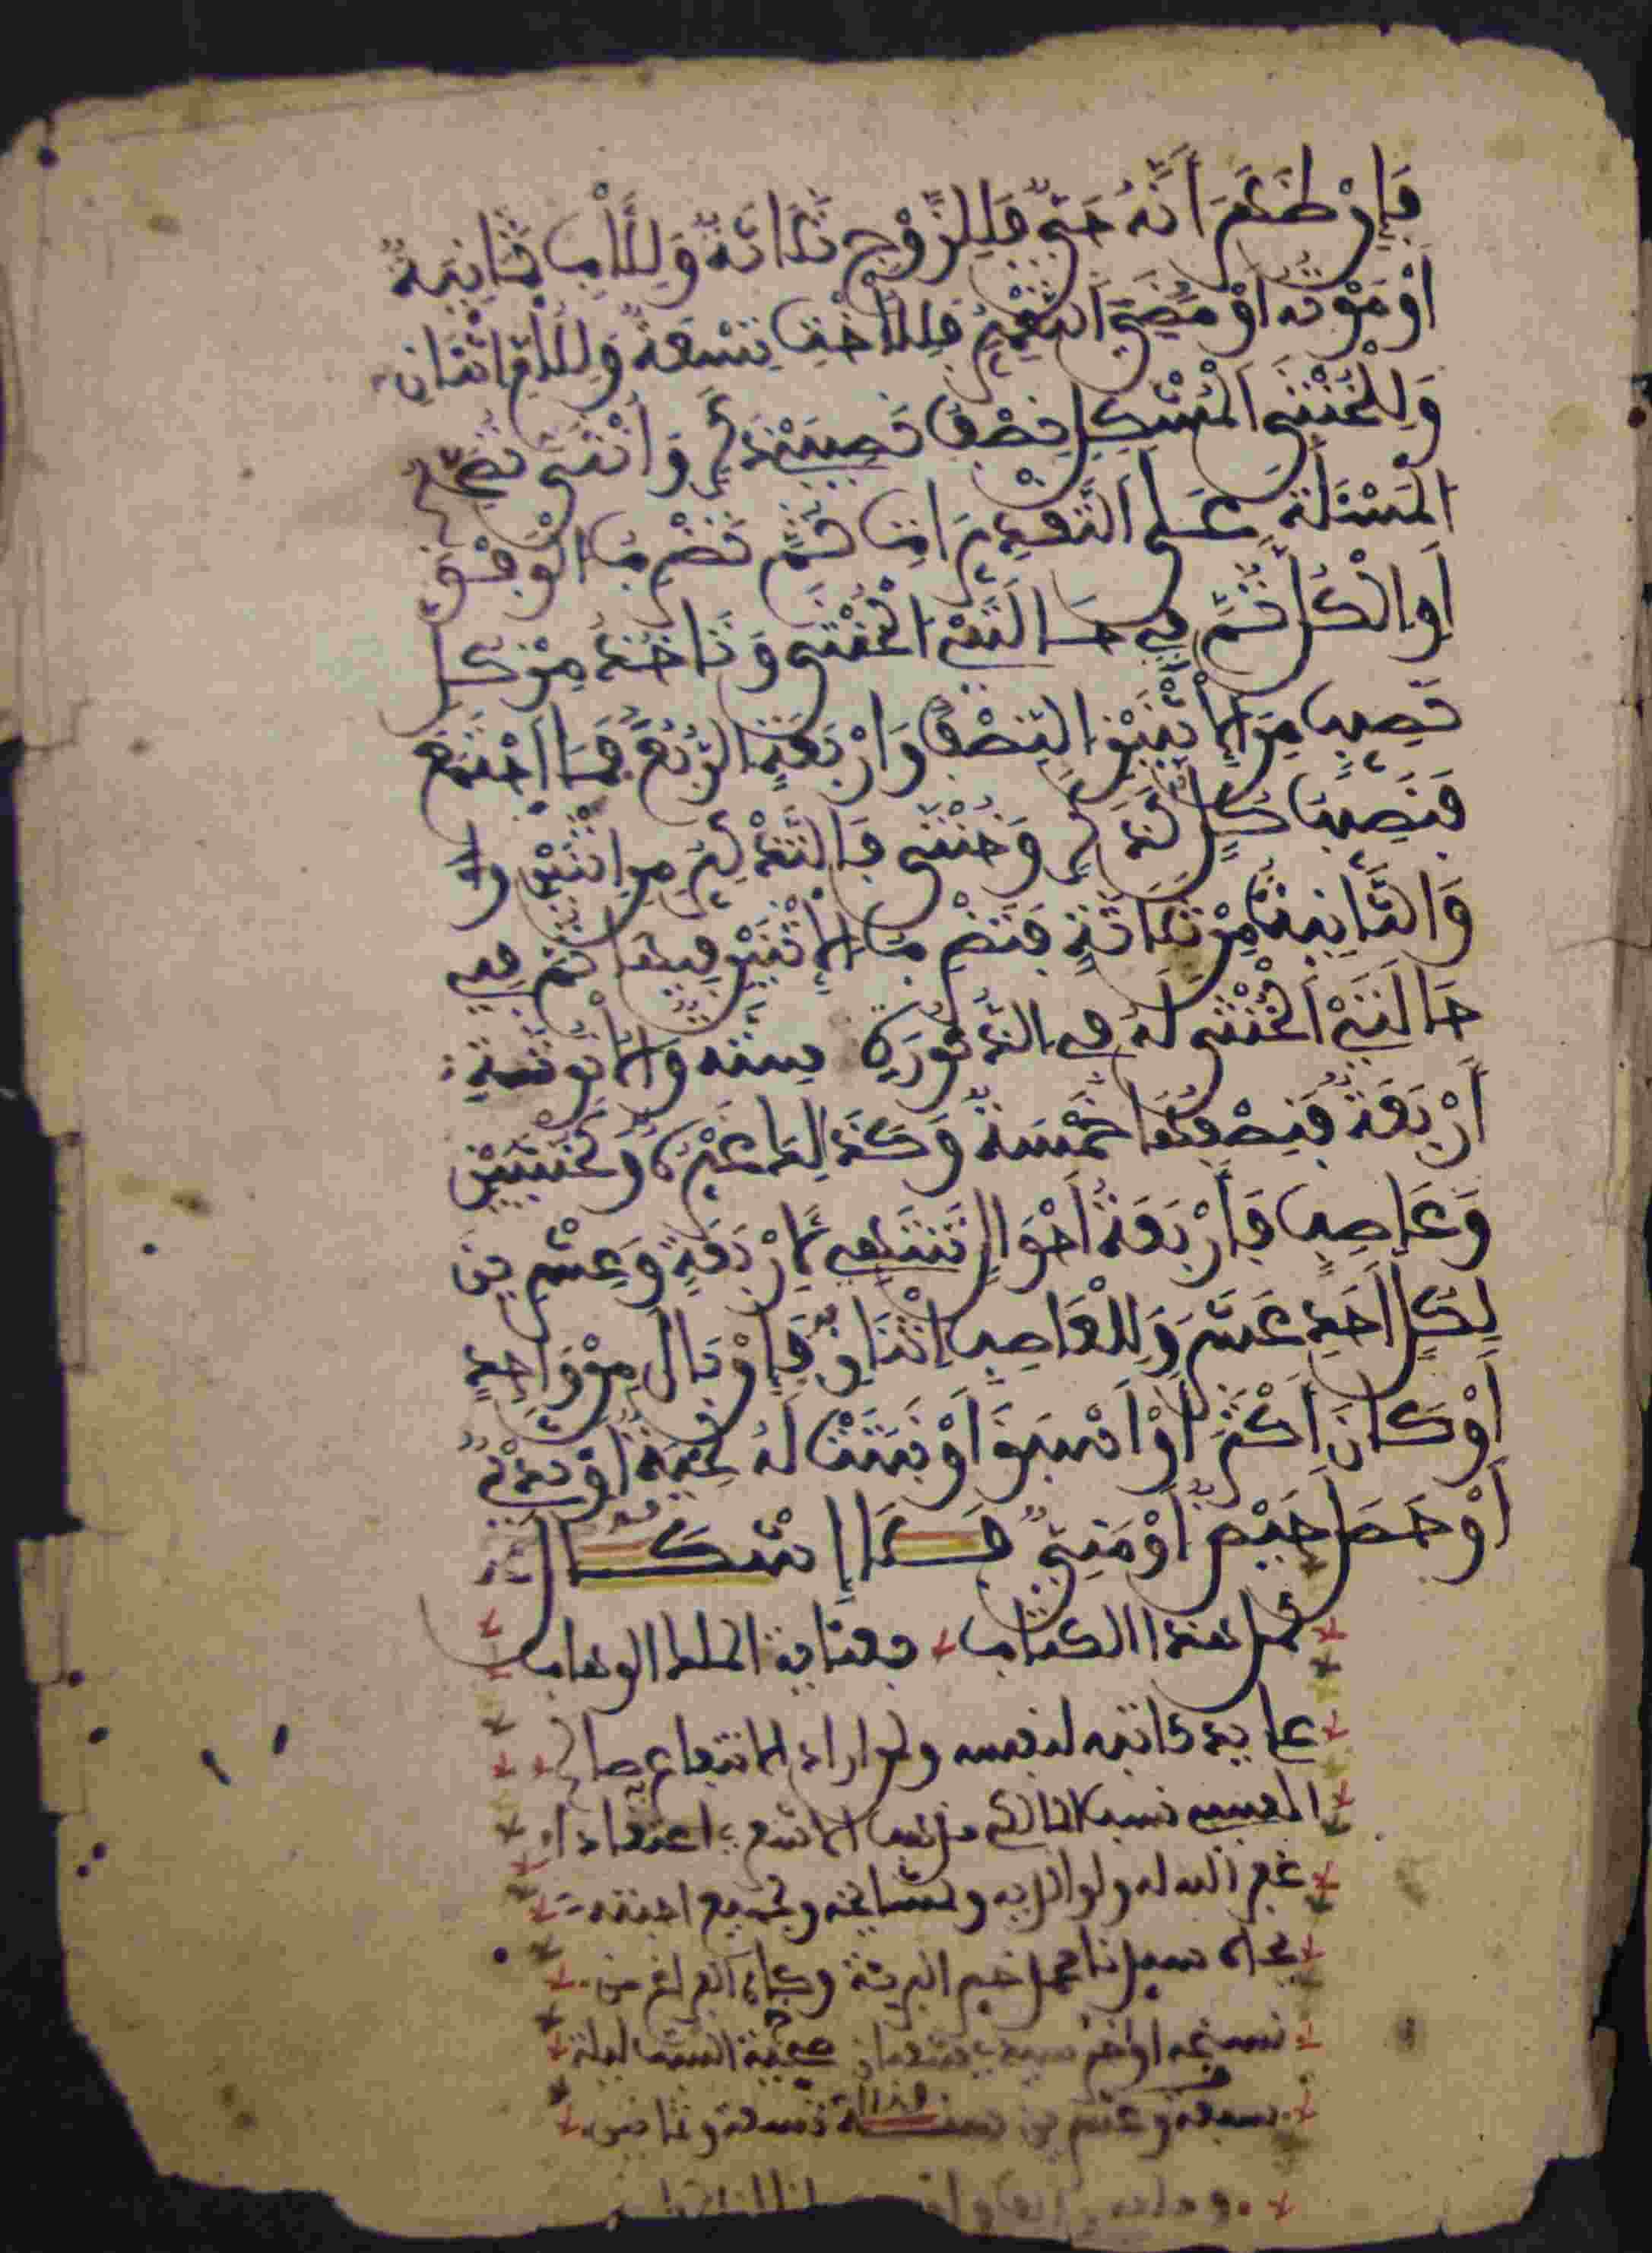 فَإِنْ ظَهَرَ أَنَّهُ حَيٌّ فَلِلزَّوْجِ ثَلَاثَةٌ وَلِلْأَبِ ثَمَانِيَةٌ
أَوْ مَوْتُهُ أَوْ مُضِيُّ التَّعْمِيرِ فَلِلْأُخْتِ تِسْعَةٌ وَلِلْأُمِّ اثْنَانِ
وَلِلْخُنْثَى الْمُشْكِلِ نِصْفُ نَصِيبَيْ ذَكَرٍ وَأُنْثَى تُصَحِّحُ
الْمَسْئَلَةَ عَلَى التَّقْدِيرَاتِ ثُمَّ تَضْرِبُ الْوَفْقَ
أَوِ الْكُلَّ ثُمَّ فِي حَالَتَيِ الْخُنْثَى وَتَأْخُذُ مِنْ كُلِّ
نَصِيبٍ مِنَ الْإِثْنَيْنِ النِّصْفَ وَأَرْبَعَةٍ الرُّبُعَ فَمَا اجْتَمَعَ
فَنَصِيبُ كُلٍّ كَذَكَرٍ وَخُنْثَى فَالتَّذْكِيرُ مِنِ اثْنَيْنِ وَا
وَالتَّانِيثُ مِنْ ثَلَاثَةٍ فَتَضْرِبُ الْإِثْنَيْنِ فِيهَا ثُمَّ فِي
حَالَتَيِ الْخُنْثَى لَهُ فِي الذُّكُورَةِ سِتَّةٌ وَالْأُنُوثَةِ
أَرْبَعَةٌ فَنِصْفُهَا خَمْسَةٌ وَكَذَلِكَ غَيْرُهُ وَكَخُنْثَيَيْنِ
وَعَاصِبٍ فَأَرْبَعَةُ أَحْوَالٍ تَنْتَهِي لِأَرْبَعَةٍ وَعِشْرِينَ
لِكُلٍّ أَحَدَ عَشَرَ وَلِلْعَاصِبِ اثْنَانِ فَإِنْ بَالَ مِنْ وَاحِدٍ
أَوْ كَانَ أَكْثَرَ أَوْ أَسْبَقَ أَوْ نَبَتَتْ لَهُ لِحْيَةٌ أَوْ ثَدْيٌ
أَوْ حَصَلَ حَيْضٌ أَوْ مَنِيٌّ فَلَا إِشْكَالَ
كمل هذا الكتاب بعناية الملك الوهاب
على يد كاتبه لنفسه ولمن اراد الانتفاع صالح
نسبا المالكي مذهبا الاشعري اعتقادا
غفر الله له ولوالديه ولمشايخه ولجميع احبته
بجاه سيدنا محمد خير البرية وكان الفراغ من
نسخه اواخر شعبان عشية السبت ليلة
سبعة وعشرين سنة تسعة وثمانين